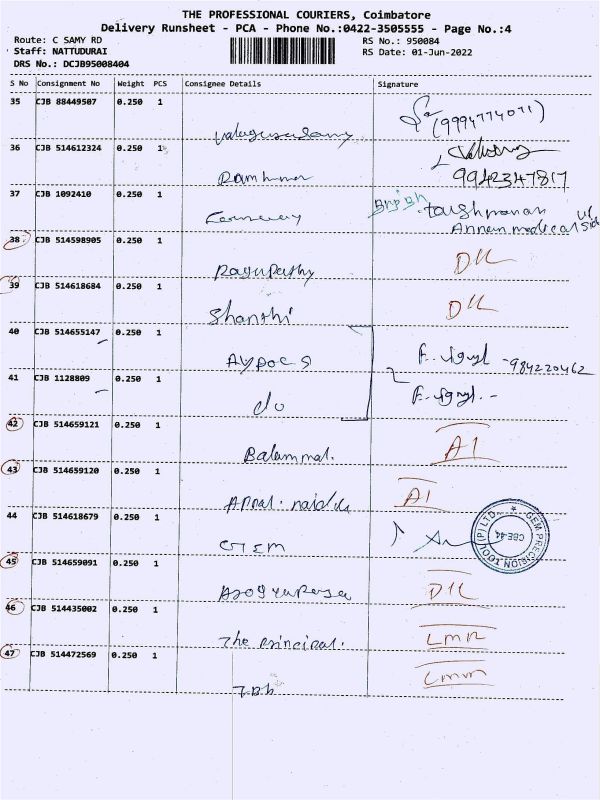 THE PROFESSIONAL COURIERS, Coimbatore
Delivery Runsheet - PCA - Phone No.:0422-3505555 - Page No.:4
Route: C SAMY RD
RS No.: 950084
Staff: NATTUDURAI
RS Date: 01-Jun-2022
DRS No.: DCJB95008404
S No Consignment No Weight PCS Consignee Details Signature
35 CJB 88449507 0.250 1
(9994774071)
36 CJB 514612324 0.250 1
9942347817
37 CJB 1092410 0.250 1
Annam medical
38 CJB 514598905 0.250 1
Ragupathy D/L
39 CJB 514618684 0.250 1
Shanthi D/L
40 CJB 514655147 0.250 1
- 984220462
41 CJB 1128809 0.250 1
do
42 CJB 514659121 0.250 1
Balammal. A1
43 CJB 514659120 0.250 1
A1
44 CJB 514618679 0.250 1
GEM
GEM PRECISION TOOL (P) LTD.
CBE-44
45 CJB 514659091 0.250 1
D/L
46 CJB 514435002 0.250 1
The principal.
47 CJB 514472569 0.250 1